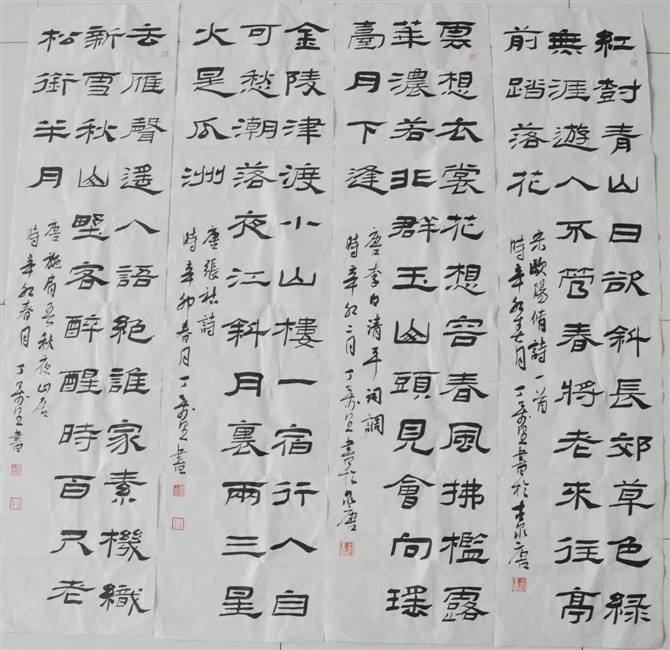 紅樹青山日欲斜長郊草色綠
無涯遊人不管春將老來往亭
前踏落花
宋歐陽脩詩一首
時辛卯春月丁書於古泉唐
雲想衣裳花想容春風拂檻露
華濃若非群玉山頭見會向瑤
臺月下逢
唐李白清平詞調
時辛卯二月丁書於泉唐
金陵津渡小山樓一宿行人自
可愁潮落夜江斜月裏兩三星
火是瓜洲
唐張祜詩
時辛卯春月丁書
去雁聲遥人語絕誰家素機織
新雪秋山野客醉醒時百尺老
松銜半月
唐施肩吾秋夜山居
時辛卯春月丁書